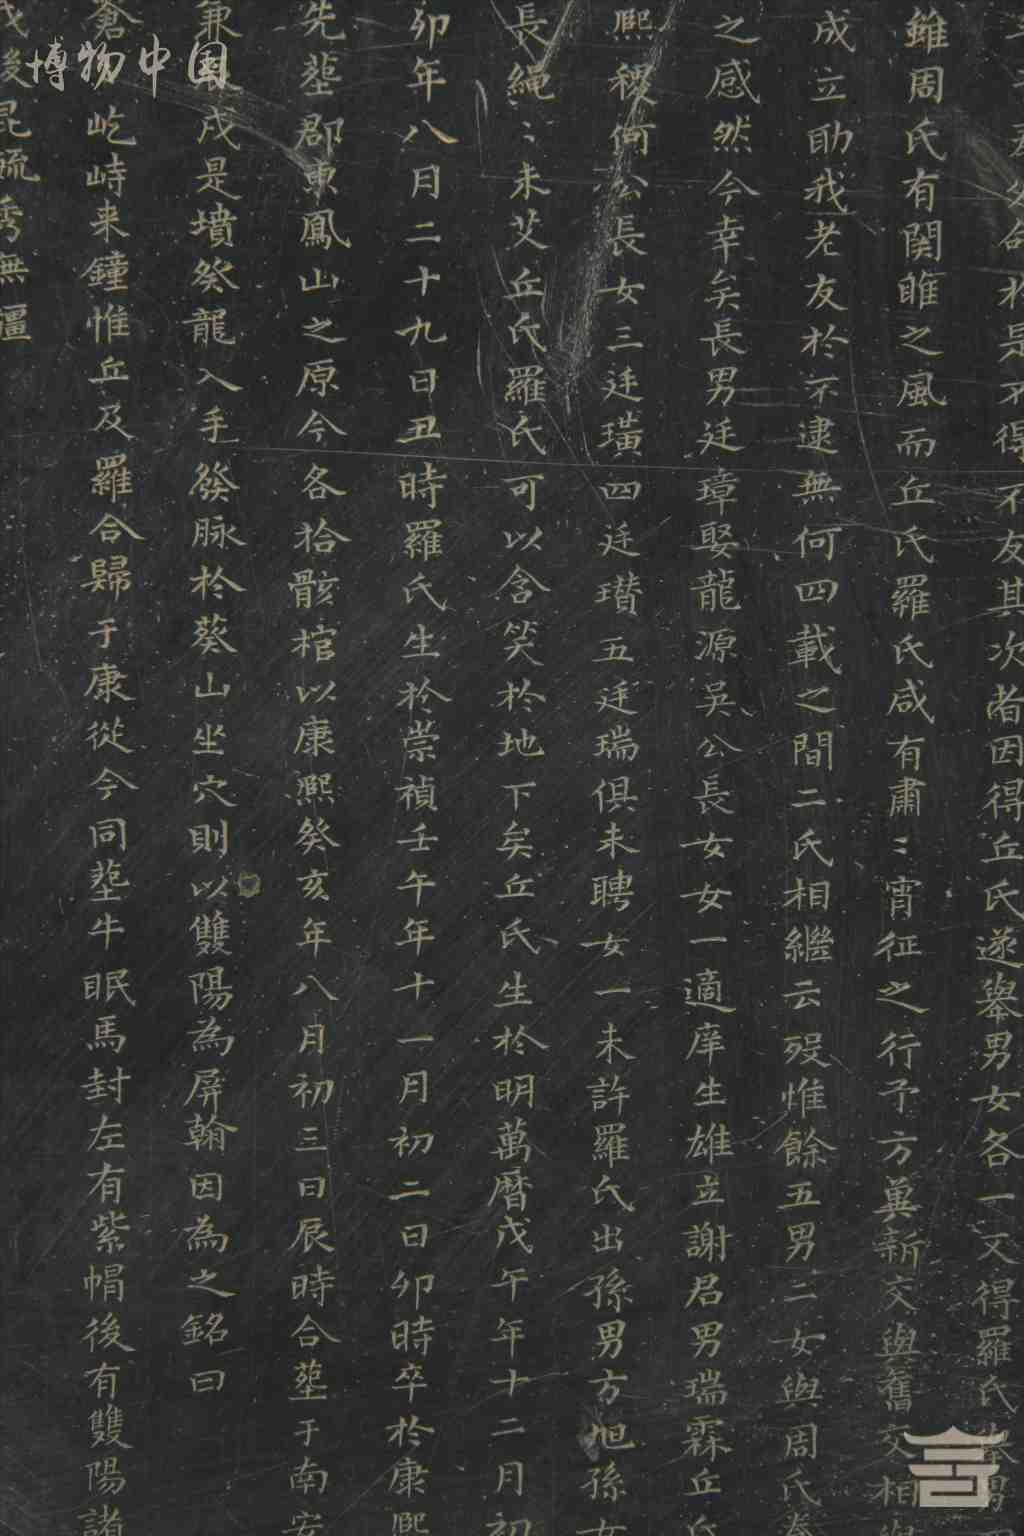 不得不友其次者因得丘氏遂舉男女各一又得羅氏
雖周氏有関睢之風而丘氏羅氏咸有肅〻宵征之行予方冀新交與舊交相
成立勖我老友於不逮無何四載之間二氏相繼云殁惟餘五男三女與周氏
之感然今幸矣長男廷璋娶龍源吳公長女女一適庠生雄立謝君男瑞霖丘氏
熙稷何公長女三廷璜四廷瓚五廷瑞俱未聘女一未許羅氏出孫男方旭孫女
長繩〻未艾丘氏羅氏可以含笑於地下矣丘氏生於明萬曆戊午年十二月初
卯年八月二十九日丑時羅氏生於崇禎壬午年十一月初二日卯時卒於康熙
先塋郡東鳳山之原今各拾骸棺以康熙癸亥年八月初三日辰時合塟于南安
兼戌是墳癸龍入手發脉於葵山坐穴則以雙陽為屏翰因為之銘曰
蒼屹峙来鐘惟丘及羅合歸于康從今同塟牛眠馬封左有紫帽後有雙陽諸
後昆毓秀無疆
博物中国